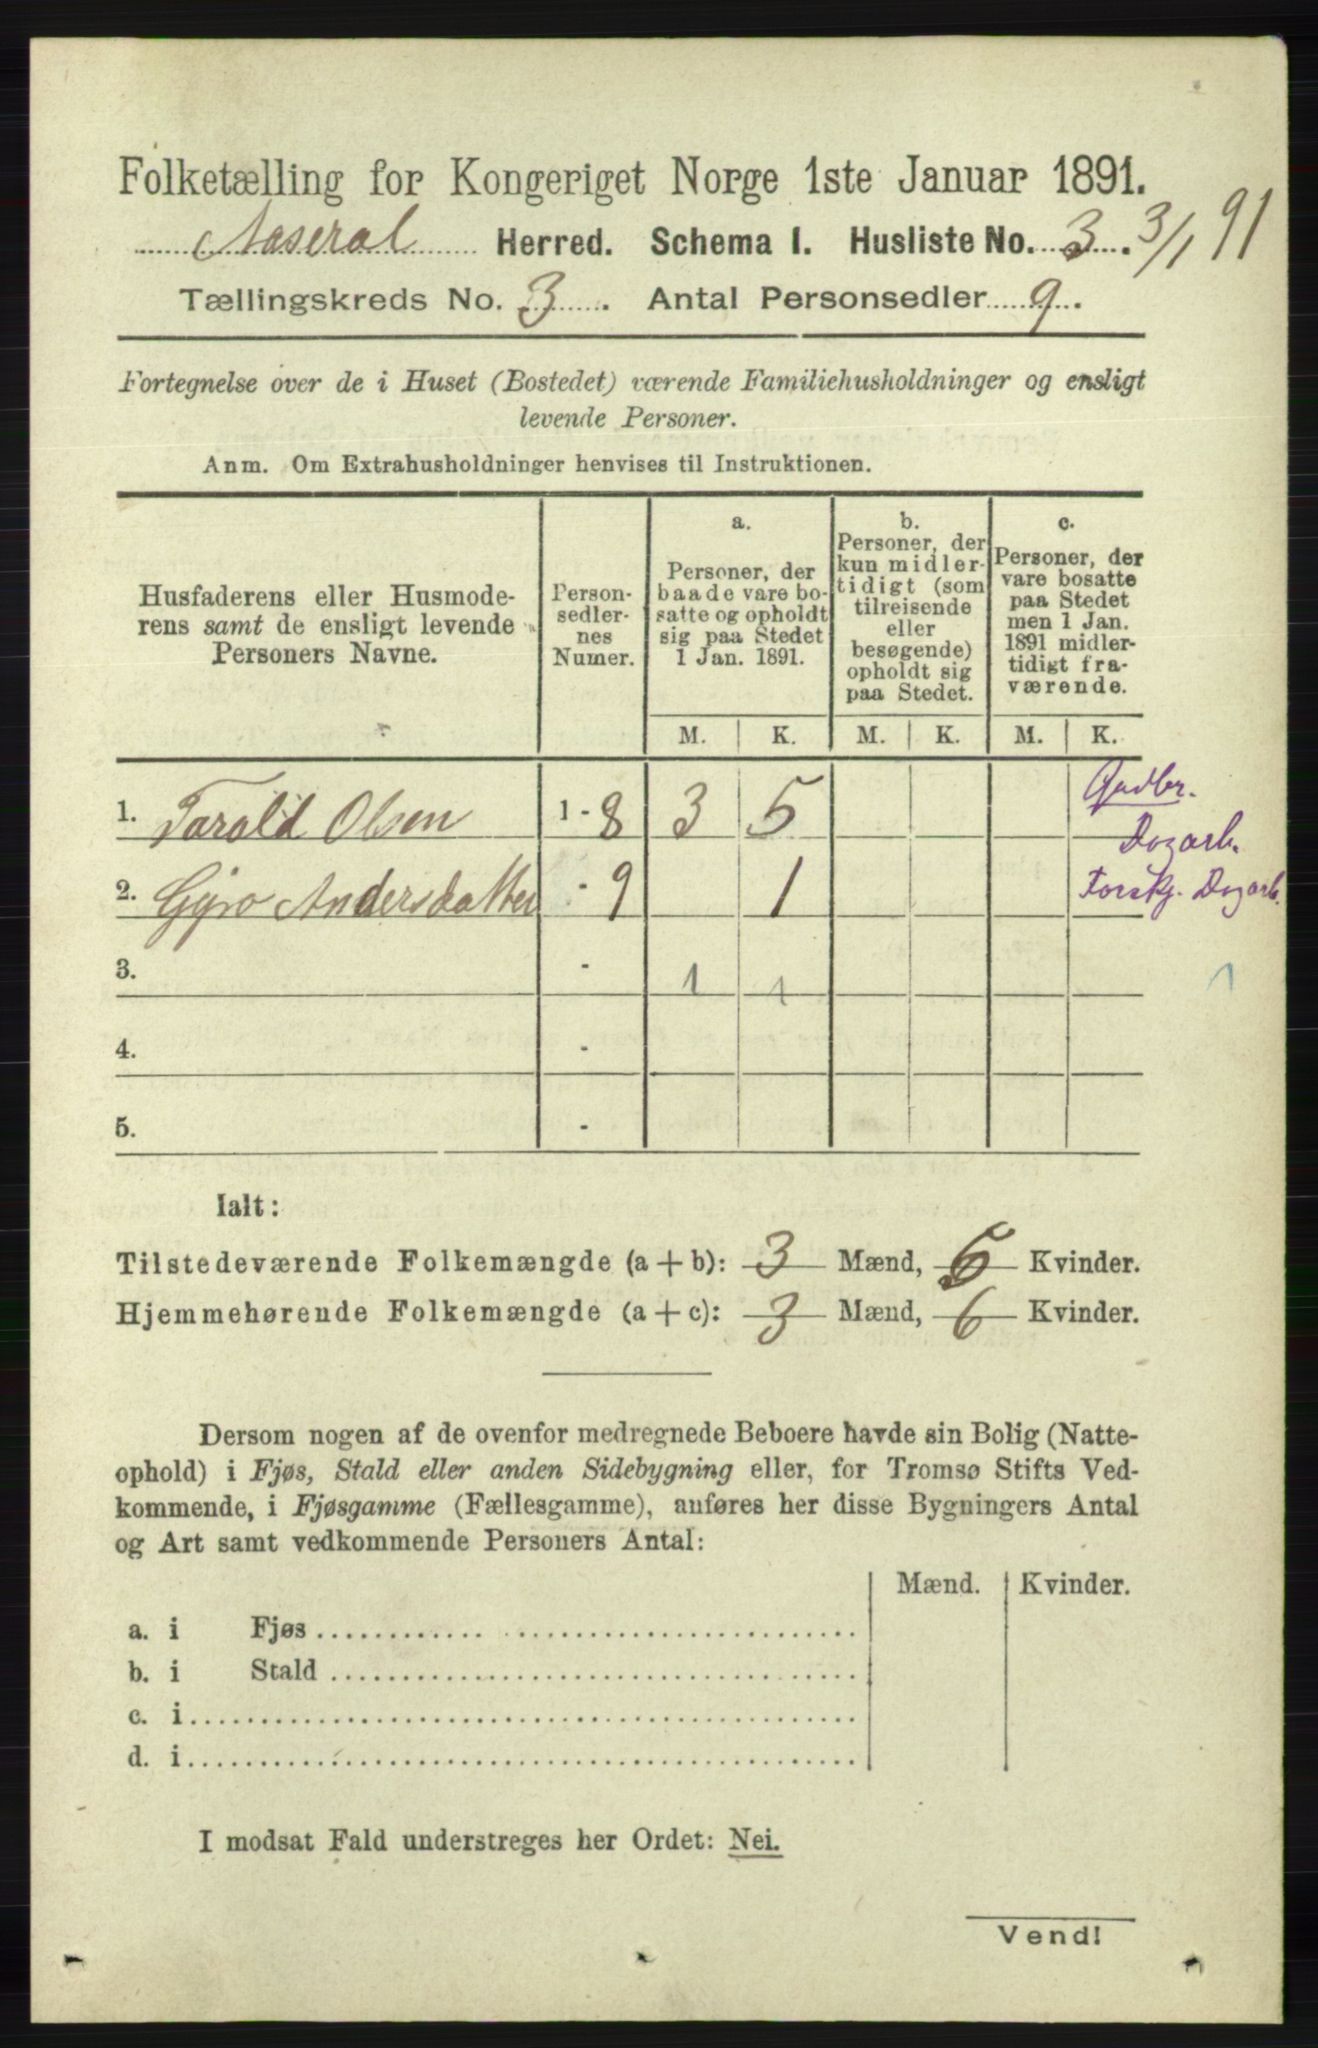 Folketælling for Kongeriget Norge 1ste Januar 1891.
Aaseral Herred. Schema I. Husliste No. 3. 3/1 91
Tællingskreds No. 3. Antal Personsedler 9.
Fortegnelse over de i Huset (Bostedet) værende Familiehusholdninger og ensligt
levende Personer.
Anm. Om Extrahusholdninger henvises til Instruktionen.
Husfaderens eller Husmode-
rens samt de ensligt levende
Personers Navne.
Person-
sedler-
nes
Numer.
a.
Personer, der
baade vare bo-
satte og opholdt
sig paa Stedet
1 Jan. 1891.
b.
Personer, der
kun midler-
tidigt (som
tilreisende
eller
besøgende)
opholdt sig
paa Stedet.
c.
Personer, der
vare bosatte
paa Stedet
men 1 Jan.
1891 midler-
tidigt fra-
værende.
M. K. M. K. M. K.
Gadbr.
1. Tarald Olsen 1 - 8 3 5
Dagarb.
2. Gyro Andersdatter - 9 1 Forskj. Dagarb.
3. - 1 1 1
4. -
5. -
Ialt:
Tilstedeværende Folkemængde (a + b): 3 Mænd, 6 Kvinder.
Hjemmehørende Folkemængde (a + c): 3 Mænd, 6 Kvinder.
Dersom nogen af de ovenfor medregnede Beboere havde sin Bolig (Natte-
ophold) i Fjøs, Stald eller anden Sidebygning eller, for Tromsø Stifts Ved-
kommende, i Fjøsgamme (Fællesgamme), anføres her disse Bygningers Antal
og Art samt vedkommende Personers Antal:
Mænd. Kvinder.
a. i Fjøs
b. i Stald
c. i
d. i
I modsat Fald understreges her Ordet: Nei.
Vend!